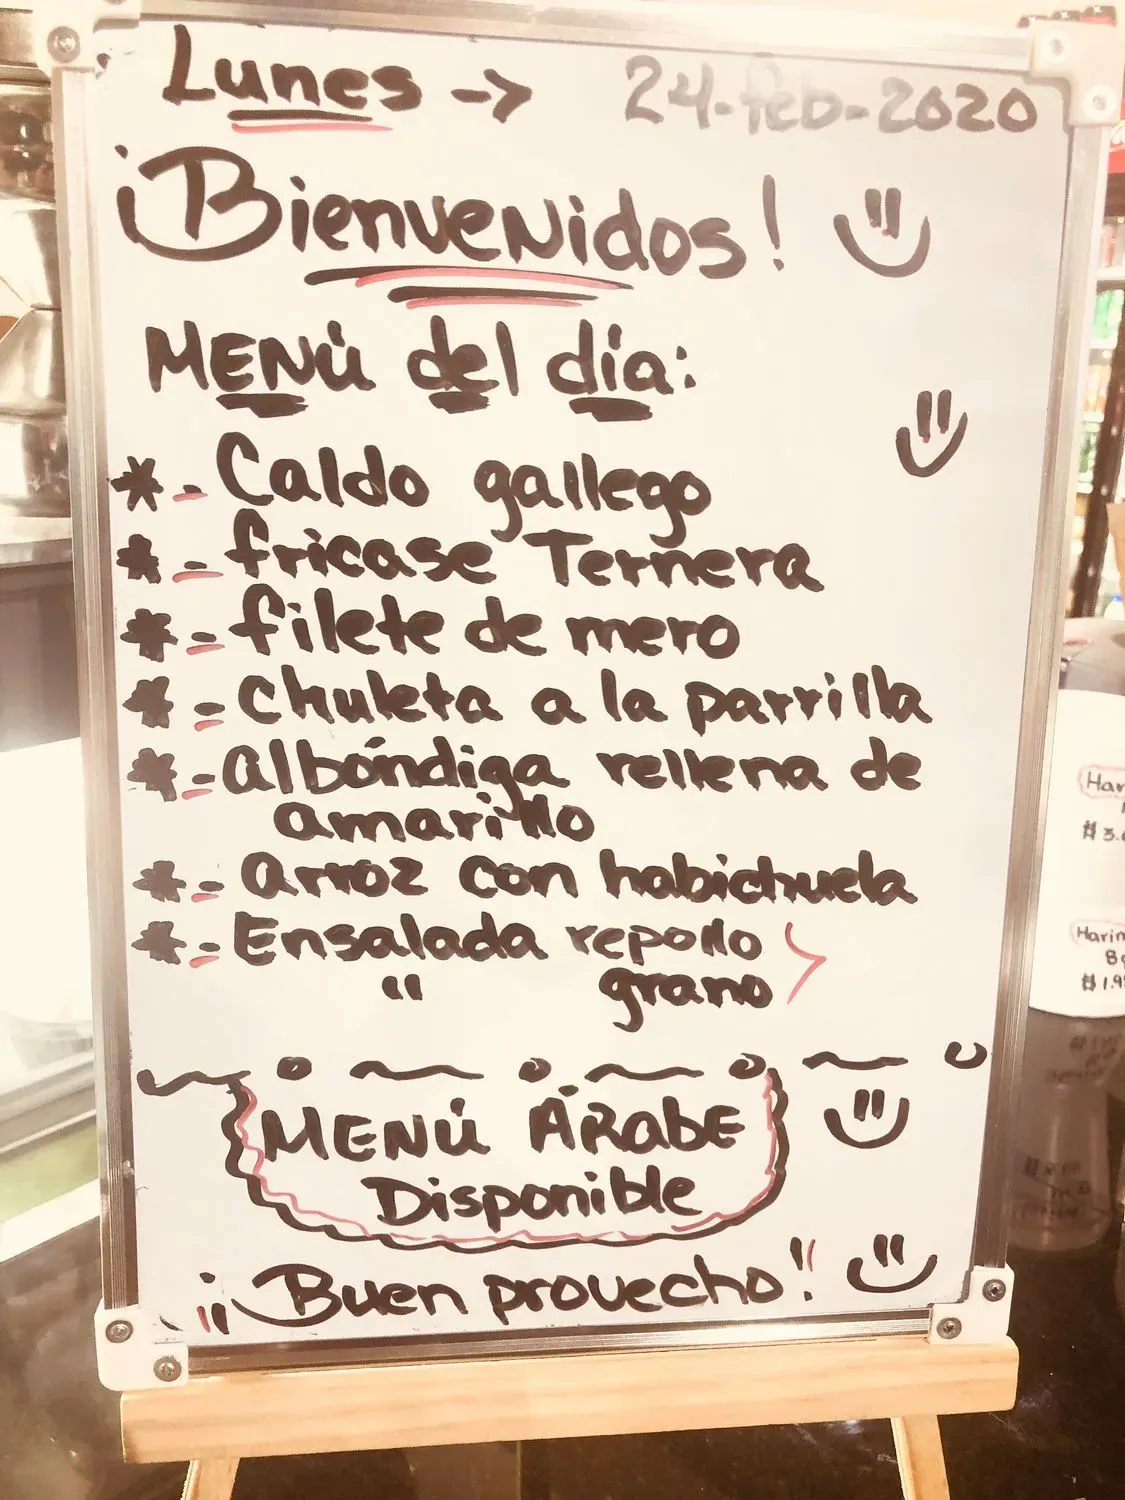 Lunes -> 24-feb-2020
¡Bienvenidos!
MENÚ del día:
*- Caldo gallego
*- fricase Ternera
*- filete de mero
*- Chuleta a la parrilla
*- albóndiga rellena de
amarillo
*- arroz con habichuela
*- Ensalada repollo
" grano
MENÚ ÁRABE
Disponible
¡¡Buen provecho!!
Har
$3.
Harin
8
$1.9